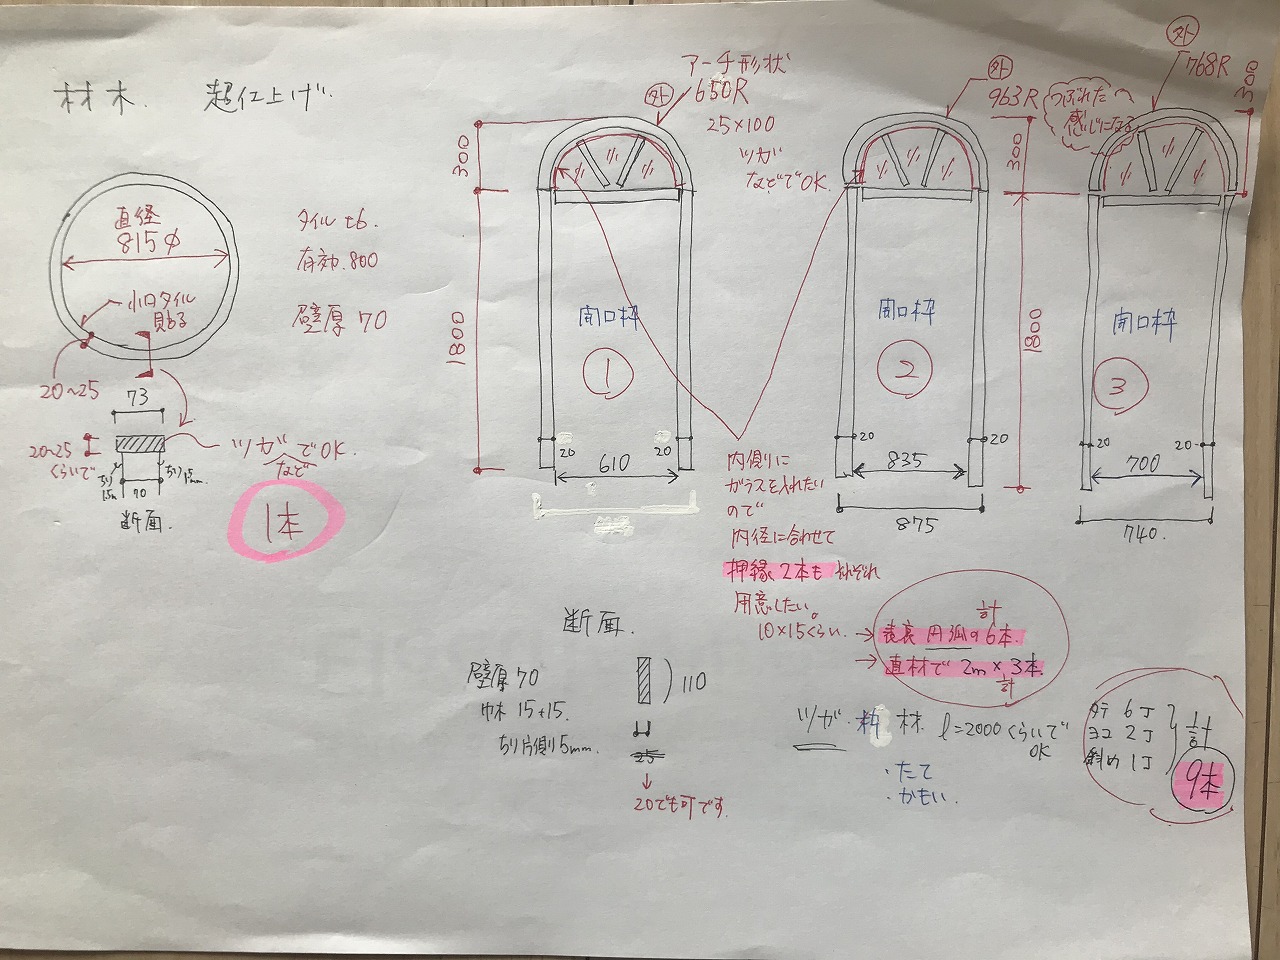 材木. 超仕上げ.
直径
815φ
小口タイル
貼る
20~25
タイル t6.
有効.800
壁厚 70
73
20~25
くらいで
ちり
15m
70
ちり
15mm
断面.
ツガでOK.
など
1本
アーチ形状
外
650R
25×100
ツガ
などでOK.
300
1800
開口枠
1
20
20
610
外
963R
300
1800
開口枠
2
20
20
835
875
つぶれた
感じになる
外
768R
300
開口枠
3
20
20
700
740.
内側りに
ガラスを入れたい
ので
内径に合わせて
押縁2本も それぞれ
用意したい。
10×15くらい.
計
→ 表裏 円弧の6本.
→ 直材で 2m × 3本.
計
断面.
壁厚 70
巾木 15+15.
ちり片側り5mm.
110
25
20でも可です.
ツガ.枠 材. l=2000くらいで
OK
・たて
・かもい.
タテ 6丁
ヨコ 2丁
斜め 1丁
計
9本